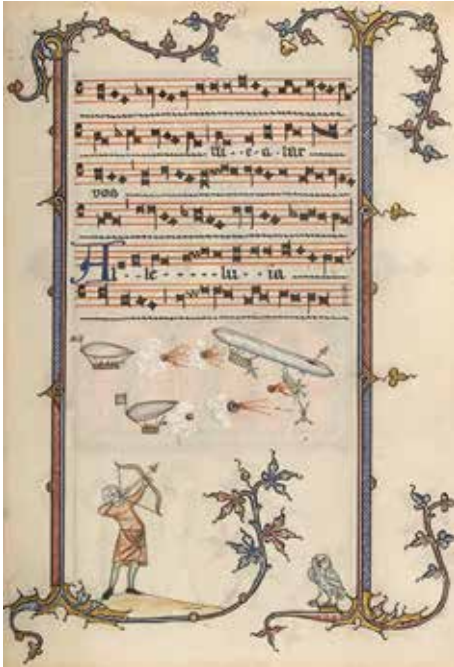 tu - - e - a - tur
vos
Al - - le - - - - - lu - - ia